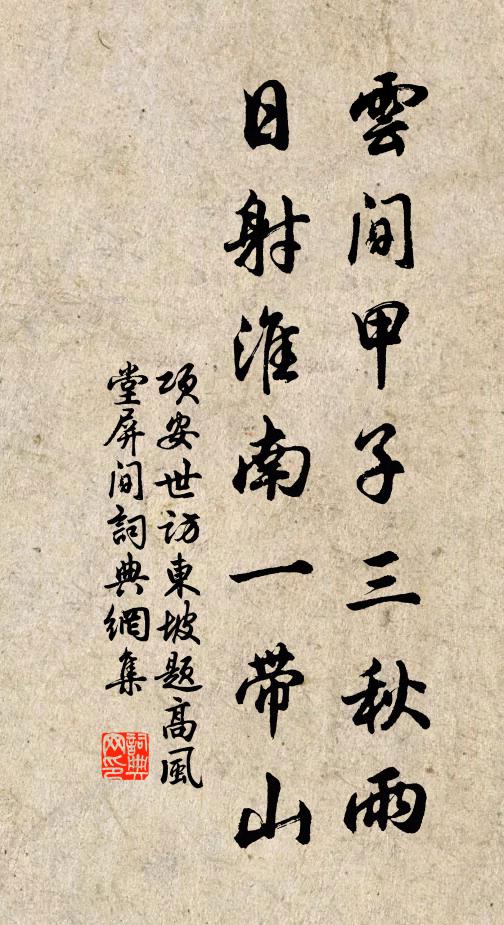 雲间甲子三秋雨
日射淮南一带山
项安世访東坡题高風
堂屏间詞典網集
詞典网印